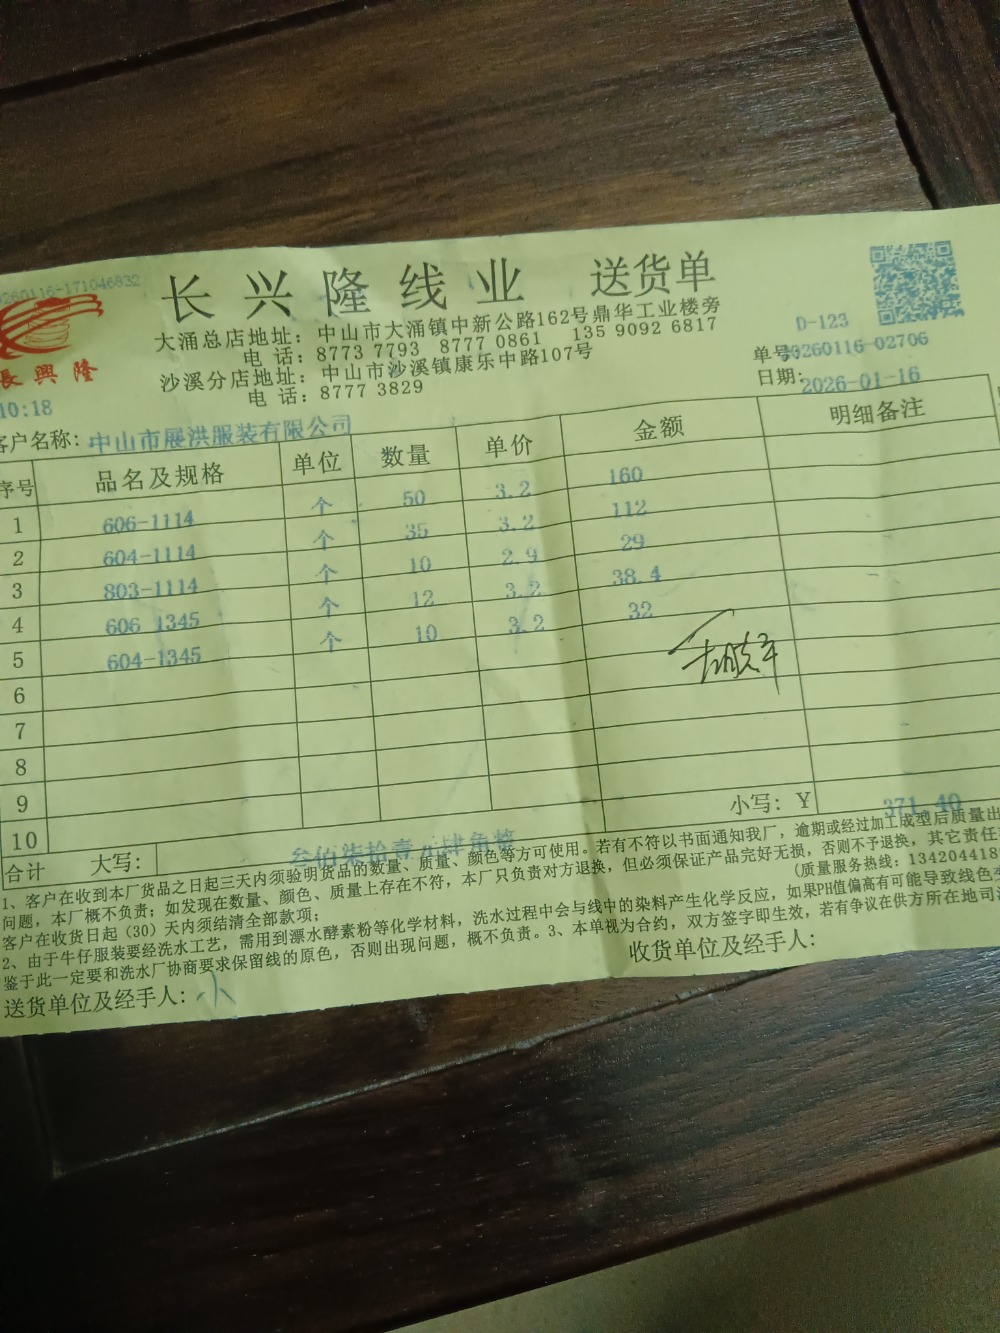 260116-171046832
长兴隆线业 送货单
大涌总店地址：中山市大涌镇中新公路162号鼎华工业楼旁
电 话：8773 7793 8777 0861 135 9092 6817
沙溪分店地址：中山市沙溪镇康乐中路107号
电 话：8777 3829
長興隆
10:18
D-123
单号:20260116-02706
日期:2026-01-16
客户名称:中山市展洪服装有限公司
序号 品名及规格 单位 数量 单价 金额 明细备注
1 606-1114 个 50 3.2 160
2 604-1114 个 35 3.2 112
3 803-1114 个 10 2.9 29
4 606 1345 个 12 3.2 38.4
5 604-1345 个 10 3.2 32
6
7
8
9
10
合计 大写: 叁佰柒拾壹元肆角整 小写: ￥ 371.40
1、客户在收到本厂货品之日起三天内须验明货品的数量、质量、颜色等方可使用。若有不符以书面通知我厂，逾期或经过加工成型后质量出
问题，本厂概不负责；如发现在数量、颜色、质量上存在不符，本厂只负责对方退换，但必须保证产品完好无损，否则不予退换，其它责任
客户在收货日起（30）天内须结清全部款项； (质量服务热线：134204418
2、由于牛仔服装要经洗水工艺，需用到漂水酵素粉等化学材料，洗水过程中会与线中的染料产生化学反应，如果PH值偏高有可能导致线色
鉴于此一定要和洗水厂协商要求保留线的原色，否则出现问题，概不负责。3、本单视为合约，双方签字即生效，若有争议在供方所在地司
送货单位及经手人: 小 收货单位及经手人: